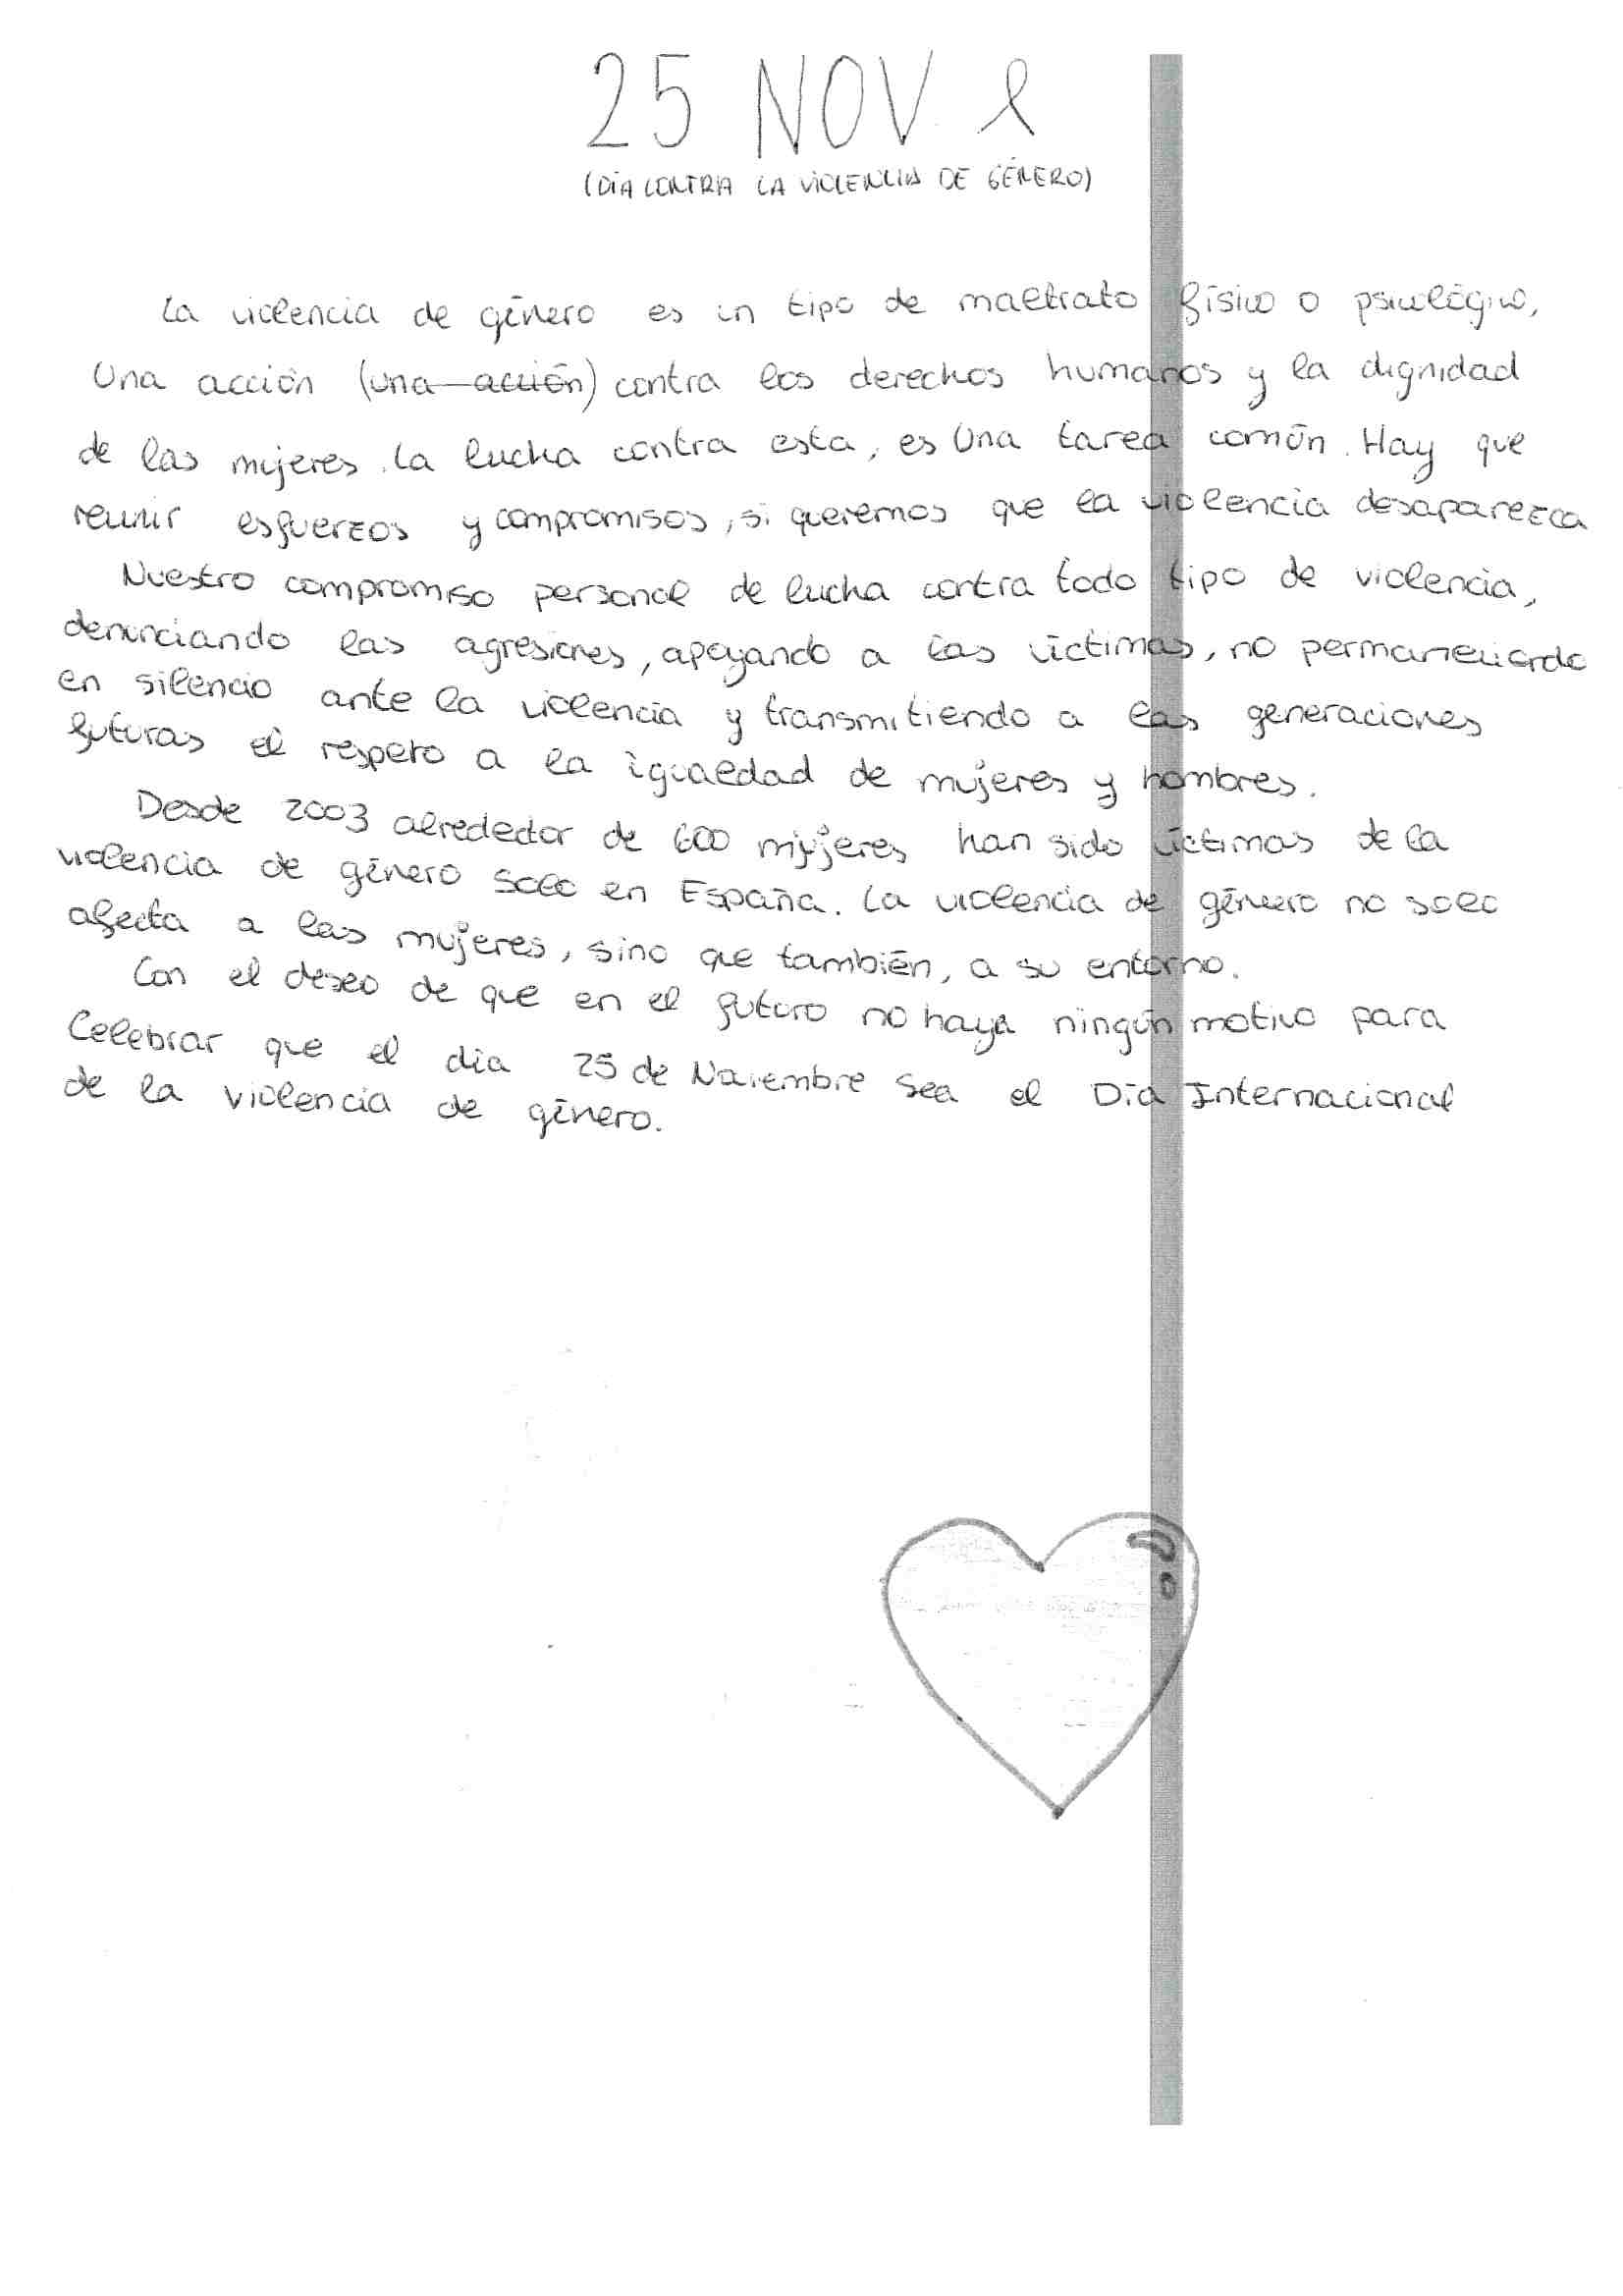 25 NOV
(DÍA CONTRA LA VIOLENCIA DE GÉNERO)
La violencia de género es un tipo de maltrato físico o psicológico,
Una acción (una acción) contra los derechos humanos y la dignidad
de las mujeres. La lucha contra esta, es Una tarea común. Hay que
reunir esfuerzos y compromisos, si queremos que la violencia desaparezca
Nuestro compromiso personal de lucha contra todo tipo de violencia,
denunciando las agresiones, apoyando a las víctimas, no permaneciendo
en silencio ante la violencia y transmitiendo a las generaciones
futuras el respeto a la igualdad de mujeres y hombres.
Desde 2003 alrededor de 600 mujeres han sido víctimas de la
violencia de género solo en España. La violencia de género no solo
afecta a las mujeres, sino que también, a su entorno.
Con el deseo de que en el futuro no haya ningún motivo para
Celebrar que el día 25 de Noviembre sea el Día Internacional
de la violencia de género.